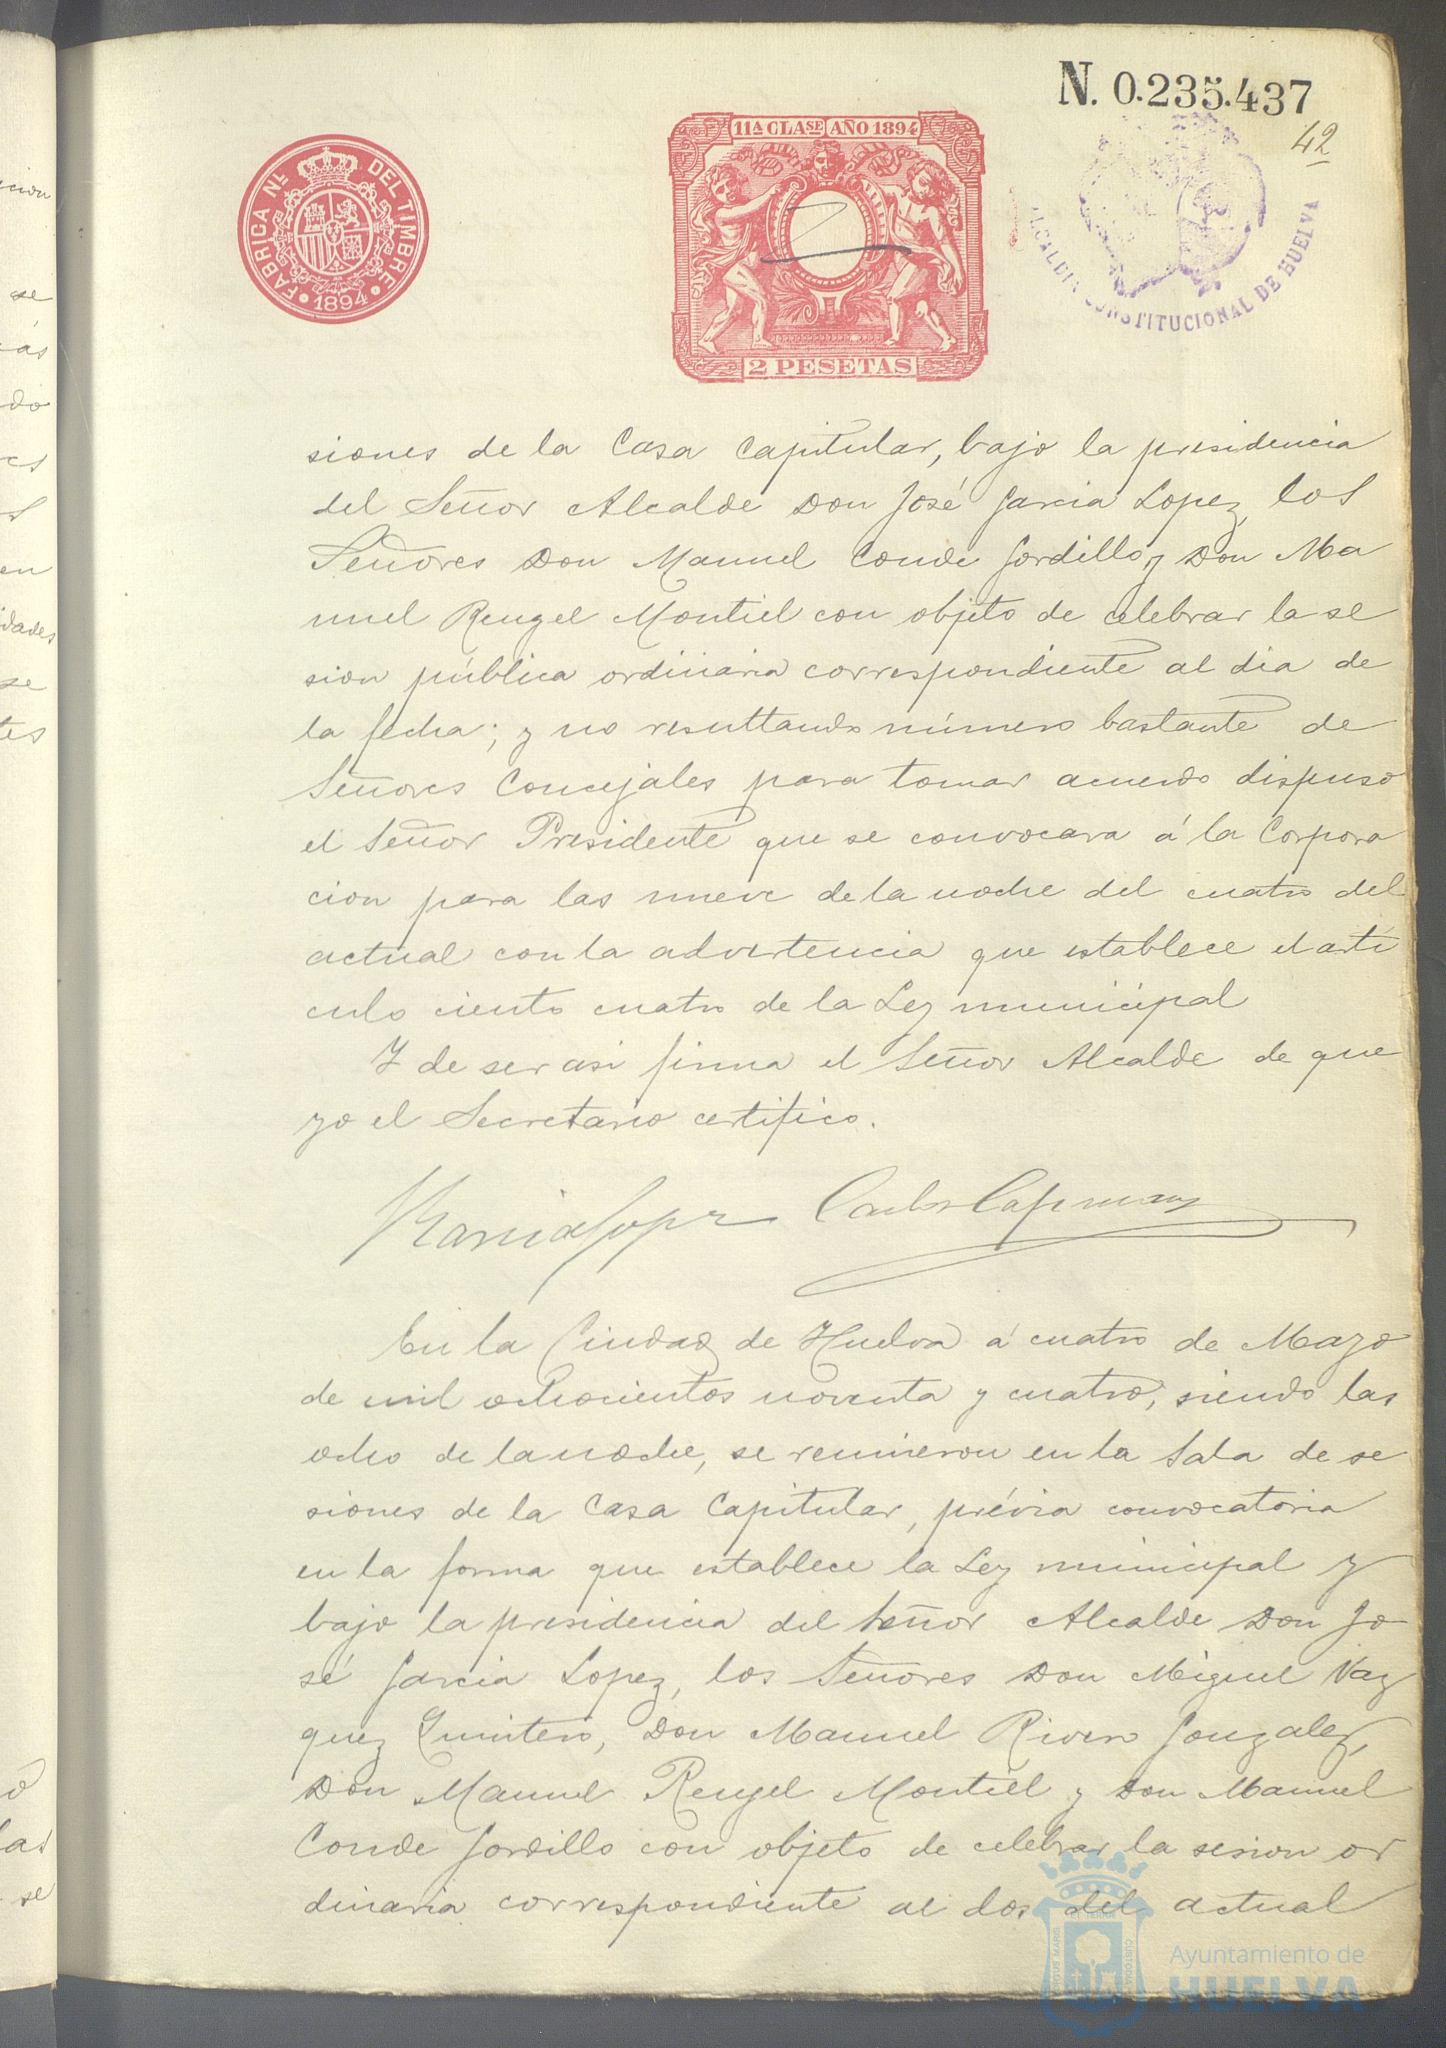 N. 0.235.437
42
11A CLASE AÑO 1894
FABRICA NL. DEL TIMBRE
1894
2 PESETAS
ALCALDIA CONSTITUCIONAL DE HUELVA
siones de la Casa Capitular, bajo la presidencia
del Señor Alcalde Don José Garcia Lopez, los
Señores Don Manuel Conde Gordillo y Don Ma
nuel Rengel Montiel con objeto de celebrar la se
sion pública ordinaria correspondiente al dia de
la fecha; y no resultando número bastante de
Señores Concejales para tomar acuerdo dispuso
el Señor Presidente que se convocara á la Corpora
cion para las nueve de la noche del cuatro del
actual con la advertencia que establece el arti
culo ciento cuatro de la Ley municipal
Y de ser asi firma el Señor Alcalde de que
yo el Secretario certifico.
Garcia Lopez Carlos Capmany
En la Ciudad de Huelva á cuatro de Mayo
de mil ochocientos noventa y cuatro, siendo las
ocho de la noche, se reunieron en la Sala de se
siones de la Casa Capitular, prévia convocatoria
en la forma que establece la Ley municipal y
bajo la presidencia del Señor Alcalde Don Jo
sé Garcia Lopez, los Señores Don Miguel Vaz
quez Quintero, Don Manuel Rivero Gonzalez,
Don Manuel Rengel Montiel y Don Manuel
Conde Gordillo con objeto de celebrar la sesion or
dinaria correspondiente al dos del actual
cion
se
ás
do
es
en
idades
se
tes
las
se
Ayuntamiento de
HUELVA